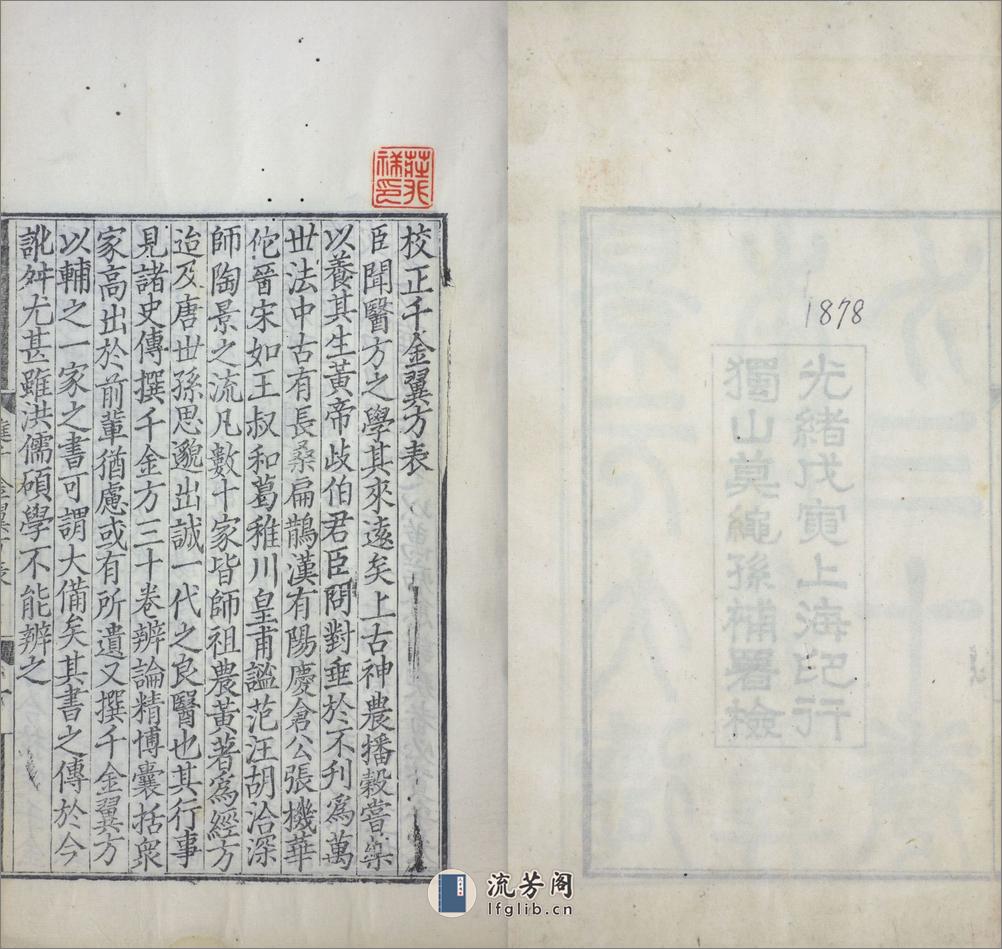 1878
光緒戊寅上海印行
獨山莫繩孫補署檢
校正千金翼方表
臣聞醫方之學其來遠矣上古神農播穀嘗藥
以養其生黃帝歧伯君臣問對垂於不刊爲萬
世法中古有長桑扁鵲漢有陽慶倉公張機華
佗晉宋如王叔和葛稚川皇甫謐范汪胡洽深
師陶景之流凡數十家皆師祖農黃著爲經方
迨及唐世孫思邈出誠一代之良醫也其行事
見諸史傳撰千金方三十卷辨論精博囊括衆
家高出於前輩猶慮或有所遺又撰千金翼方
以輔之一家之書可謂大備矣其書之傳於今
訛舛尤甚雖洪儒碩學不能辨之
流芳阁
lfglib.cn